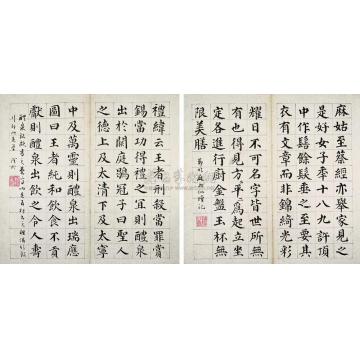 麻姑至蔡經亦舉家見之
是好女子年十八九許頂
中作髻餘髮垂之至要其
衣有文章而非錦綺光彩
耀日不可名字皆世所無
有也得見方平為起立坐
定各進行廚金盤玉杯無
限美膳
禮緯云王者刑殺當罪賞
錫當功得禮之宜則醴泉
出於闕庭鶡冠子曰聖人
之德上及太清下及太寧
中及萬靈則醴泉出瑞應
圖曰王者純和飲食不貢
獻則醴泉出飲之令人壽